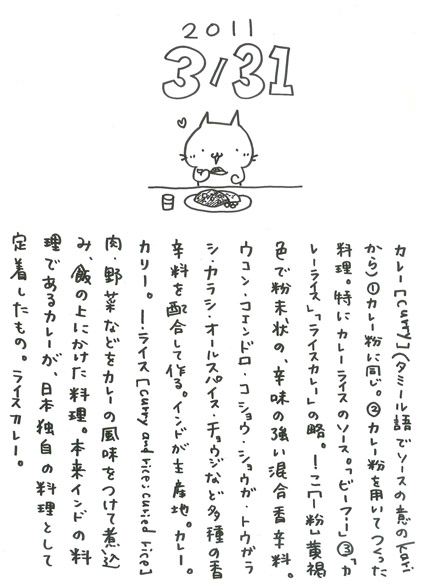 2011
3/31
カレー[curry](タミール語でソースの意のkari
から)①カレー粉に同じ。②カレー粉を用いてつくった
料理。特にカレーライスのソース。「ビーフー」③「カ
レーライス」「ライスカレー」の略。ーこ[ー粉]黄褐
色で粉末状の、辛味の強い混合香辛料。
ウコン・コエンドロ・コショウ・ショウガ・トウガラ
シ・カラシ・オールスパイス・チョウジなど多種の香
辛料を配合して作る。インドが主産地。カレー。
カリー。ー・ライス[curry and rice; curied rice]
肉・野菜などをカレーの風味をつけて煮込
み、飯の上にかけた料理。本来インドの料
理であるカレーが、日本独自の料理として
定着したもの。ライスカレー。